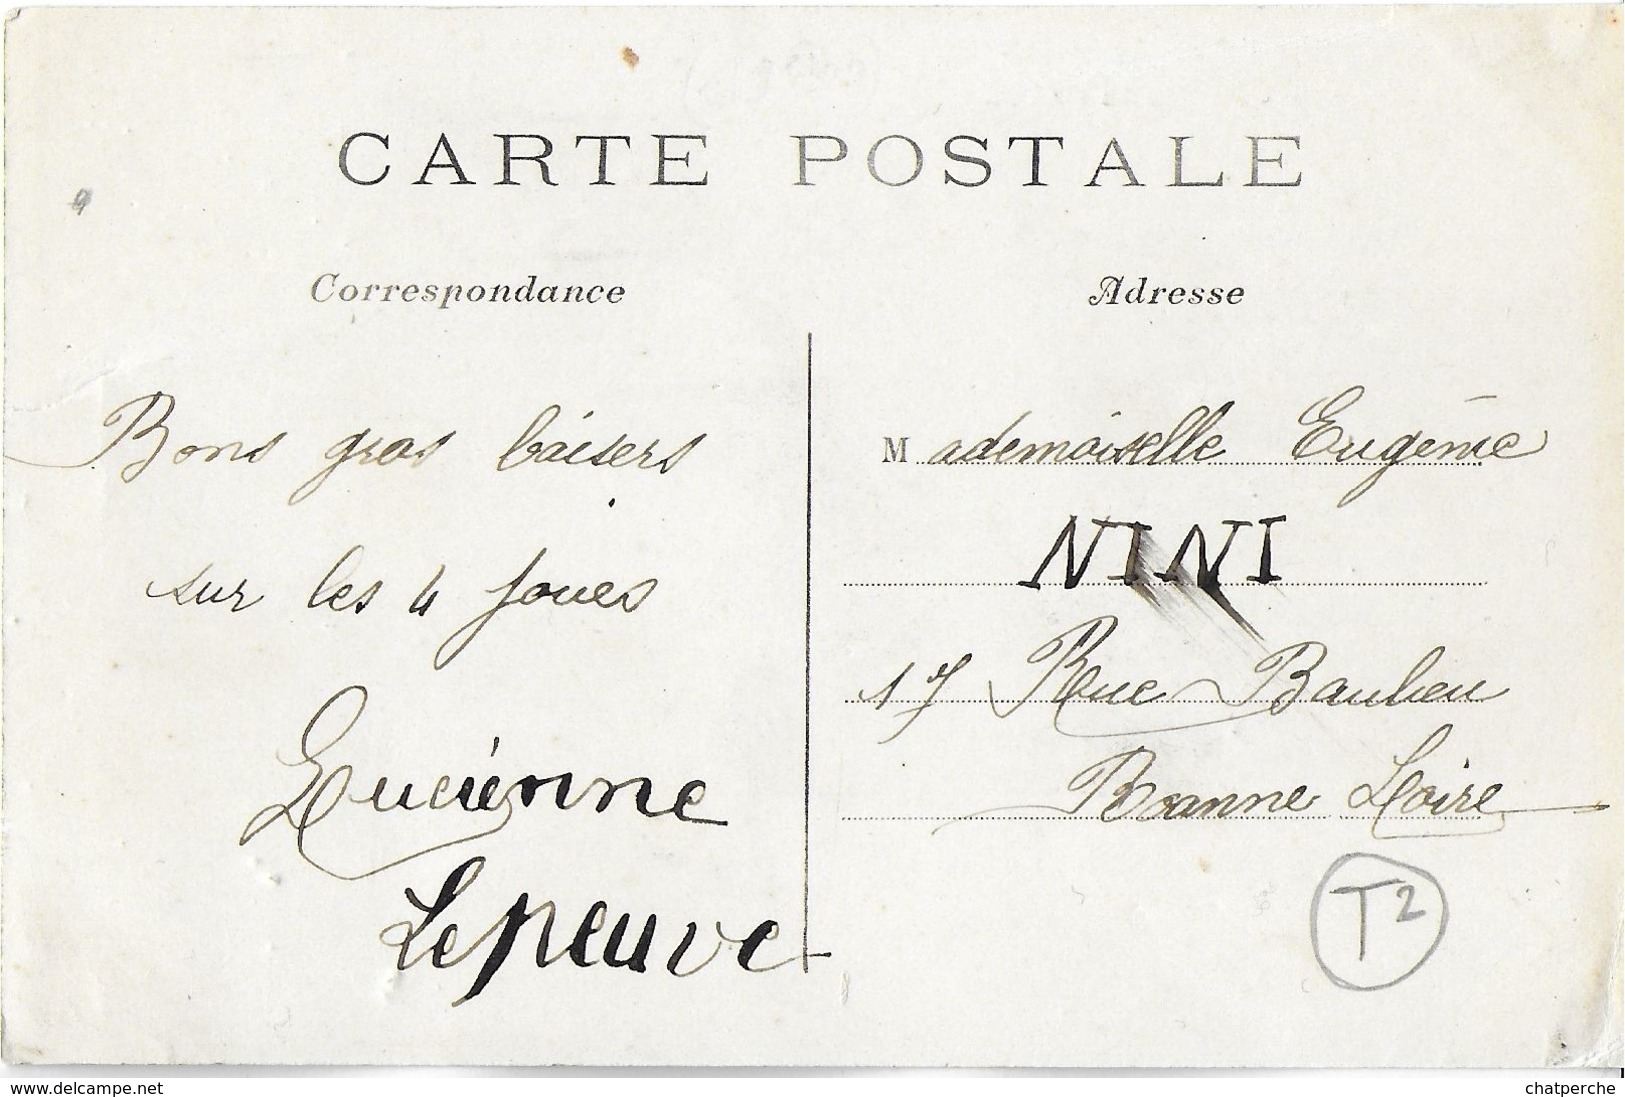 CARTE POSTALE
Correspondance
Adresse
Bons gros baisers
sur les 4 joues
Lucienne
Lepeuve
Mademoiselle Eugénie
NINI
17 Rue Baulieu
Roanne Loire
T2
www.delcampe.net
chatperche